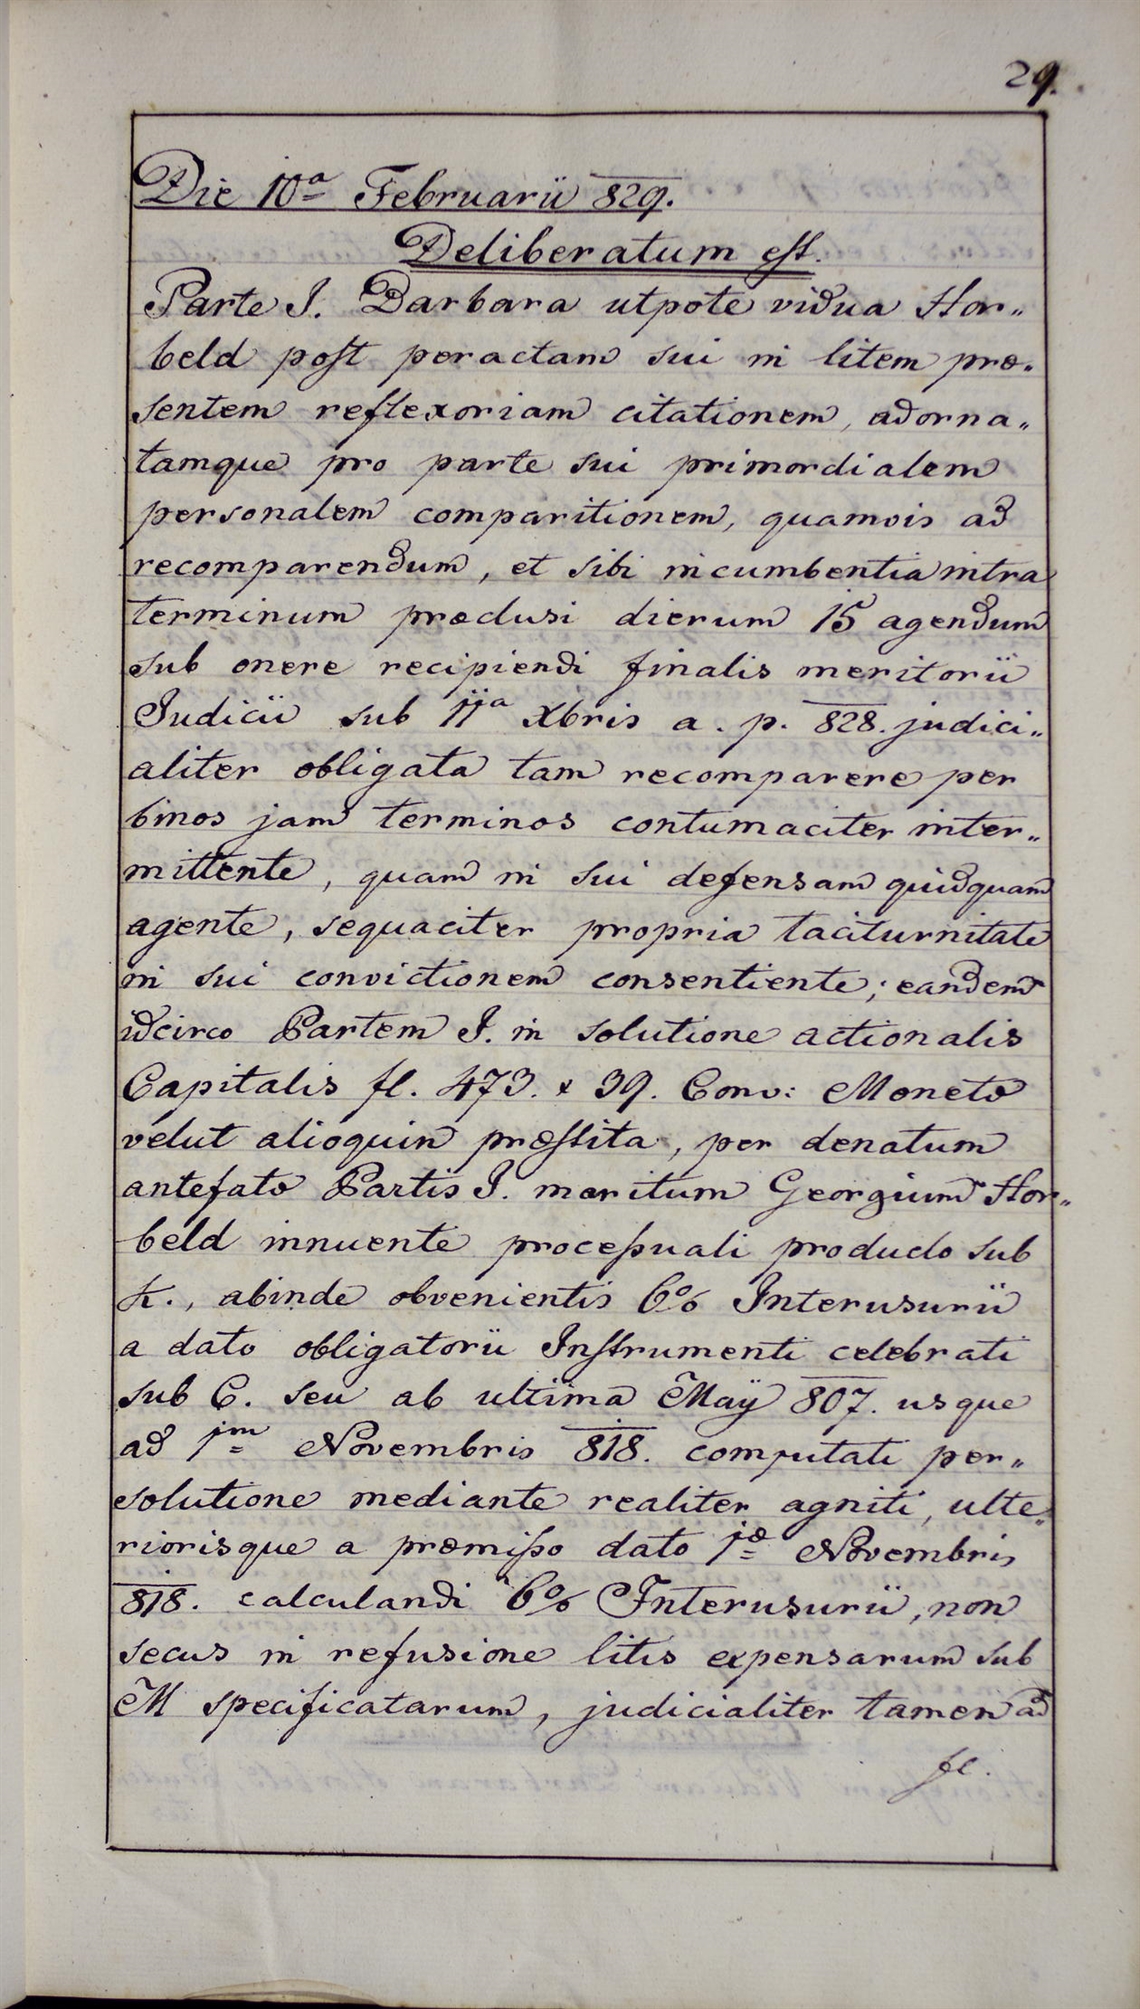 29.
Die 10a Februarii 829.
Deliberatum est.
Parte I. Barbara utpote vidua Hor„
beld post peractam sui in litem præ„
sentem reflexoriam citationem, adorna„
tamque pro parte sui primordialem
personalem comparitionem, quamvis ad
recomparendum, et sibi incumbentia intra
terminum præclusi dierum 15 agendum
sub onere recipiendi finalis meritorii
Judicii sub 11a Xbris a. p. 828. judici„
aliter obligata tam recomparere per
binos jam terminos contumaciter inter„
mittente, quam in sui defensam quidquam
agente, sequaciter propria taciturnitate
in sui convictionem consentiente; eandem
idcirco Partem I. in solutione actionalis
Capitalis fl. 473. x 39. Conv: Monetæ
velut alioquin præstita, per denatum
antefatæ Partis I. maritum Georgium Hor„
beld innuente processuali producto sub
K., abinde obvenientis 6% Interusurii
a dato obligatorii Instrumenti celebrati
sub C. seu ab ultima Maÿ 807. usque
ad 1m Novembris 818. computati per„
solutione mediante realiter agniti, ulte„
riorisque a præmisso dato 1æ Novembris
818. calculandi 6% Interusurii, non
secus in refusione litis expensarum sub
M specificatarum, judicialiter tamen ad
fl.